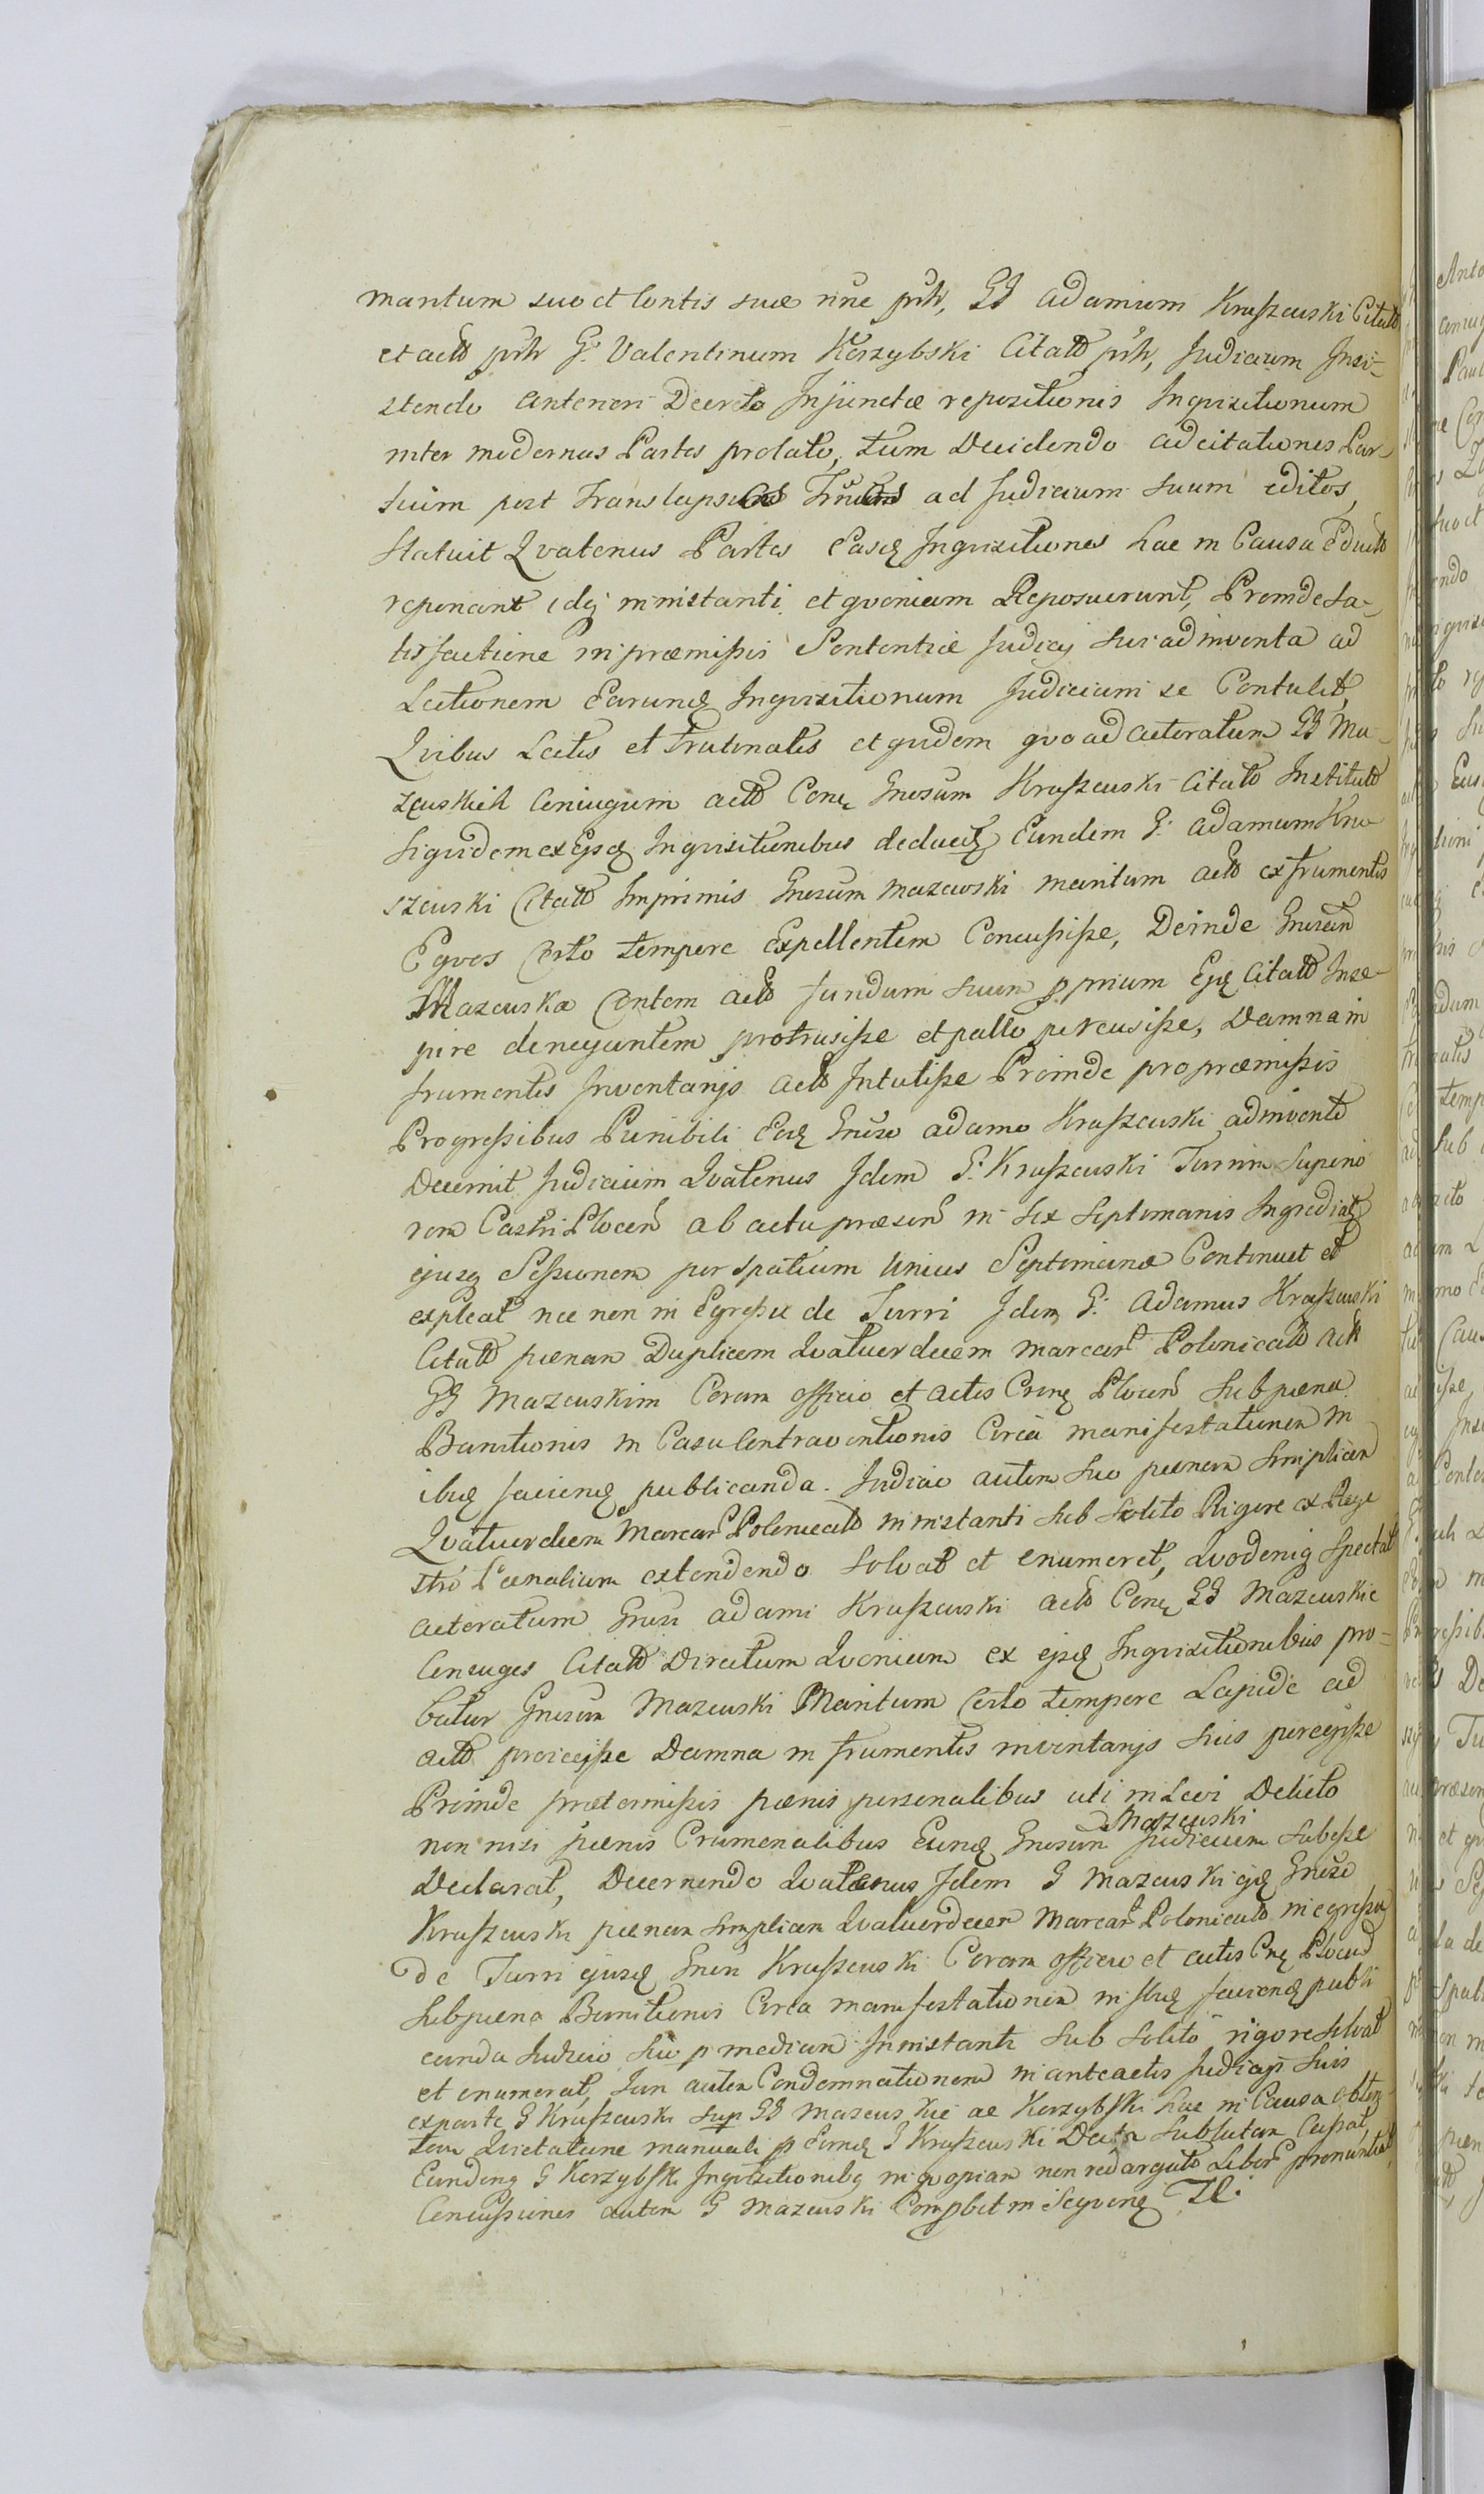 mantum suo et Contis suae nne prh, GG Adamum Kraszewski Citato
et acto prh G. Valentinum Korzybski Citato prh, Judicium Insi-
stendo anteriori Decreto Injunctae repositionis Inqvisitionum
inter modernas Partes prolato, tum Decidendo ad citationes Par-
tium post translapsum ad Judicium suum editos,
Statuit Qvatenus Partes Easq Inqvisitiones hac in Causa Educto
reponant idq in instanti et qvoniam Reposuerunt, Proinde sa-
tisfactione in praemissis Sententiae Judicij sui adinventa ad
Lectionem Earunq Inqvisitionum Judicium se Contulit,
Qvibus Lectis et trutinatis et qvidem qvo ad acteratum GG Ma-
zewskich Coniugum acto Conq Gnosum Kraszewski Citato Institut
Siqvidem ex Ejsq Inqvisitionibus deducit Eundem G. Adamum Kra-
szewski Citato Imprimis Gnosum Mazewski maritum acto ex frumentis
Eqvos Certo tempore Expellentem Concussisse, Deinde Gnosam
Mazewska Contem acto fundum suum pprium Ejq Citato Inse-
pire denegantem protrusisse et pallo percusisse, Damna in
frumentis Inventarijs acto Intulisse Proinde pro praemissis
Progressibus Punibili Eoq Gnoso Adamo Kraszewski adinvento
Decernit Judicium Qvatenus Idem G. Kraszewski Turrim Superio
rem Castri Plocen ab actu praesen in sex Septimanis Ingrediat
ejusq Sessionem per spatium Unius Septimanae Continuet et
expleat nec non in Egressu de Turri Idem G. Adamus Kraszewski
Citato paenam Duplicem Qvatuordecem marcar Polonicalo acto
GG Mazewskim Coram officio et actis Crenq Plocen sub paena
Banitionis in Casu Contraventionis Circa manifestationem in
ibiq faciend publicanda. Judicio autem suo paenam simplicem
Qvatuordecem Marcar Polonicalo in instanti sub solito Rigore ex Rege
stro Paenalium extendendo solvat et enumeret, Qvod eniq spectat
acteratum Gnosi Adami Kraszewski acto Conq GG Mazewskie
Coniuges Citato Directum Qvoniam ex ejsq Inqvisitionibus pro-
batur Gnosum Mazewski Maritum Certo tempore Lapide ad
acto projecisse Damna in frumentis inventarijs suis percepisse
Proinde praetermissis paenis personalibus uti in Levi Delicto
non nisi paenis Crumenalibus Eunq Gnosum Mazewski Judicium subesse
Declarat, Decernendo Qvatenus Idem G Mazewski ejq Gnoso
Kraszewski paenam simplicem Qvatuordecem Marcar Polonicalo in egressu
de Turri ejusq Gnosi Kraszewski Coram officio et actis Cnq Plocen
Sub paena Banitionis Circa manifestationem in ibiq faciend publi
canda Judicio suo p mediam In instanti sub solito rigore solvat
et enumerat, Jam autem Condemnationem in anteactis Judicijs suis
ex parte G Kraszewski sup GG Mazewskie ac Korzybski hac in Causa obten-
tam Qvietatione manuali p Eunq G Kraszewski Data sublatam Cassat,
Eundenq G Korzybski Inqvisitionibq in qvopiam non redarguto Liber pronuntiat,
Concussiones autem G Mazewski Comprobet in Seqvenq